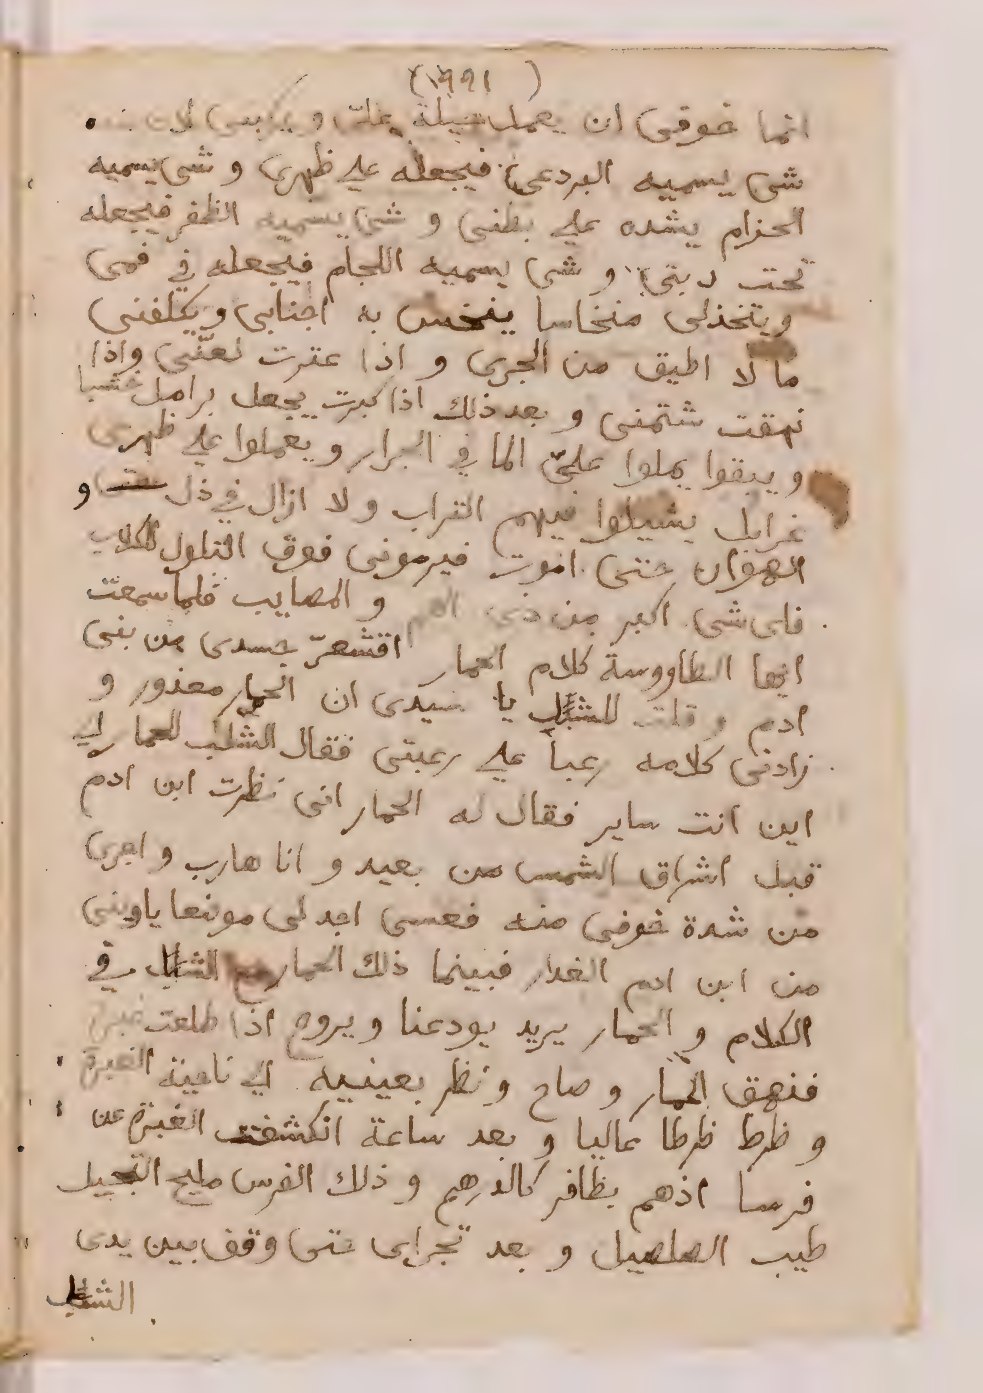 (١٩٩١)
انما خوفي ان يعمل حيلة علي و يركبني لان عنده
شي يسميه البردعي فيجعله علي ظهري و شي يسميه
الحزام يشده علي بطني و شي يسميه الظفر فيجعله
تحت دبتي و شي يسميه اللجام فيجعله في فمي
ويتخذلي منخاسا ينخس به اجنابي ويكلفني
ما لا اطيق من الجري و اذا عترت لعنّي واذا
نهقت شتمني و بعد ذلك اذا كبرت يجعل برامل خشبا
و يبقوا يملوا عليّ الما في الجرار و يعملوا علي ظهري
غرابل يشيلوا فيهم التراب و لا ازال في ذل و
الهوان حتي اموت فيرموني فوق التلول للكلاب
فاي شي اكبر من دي الهم و المصايب فلما سمعت
ايها الطاووسة كلام الحمار اقشعرّ جسدي من بني
ادم و قلت للشبل يا سيدي ان الحمار معذور و
زادني كلامه رعباً علي رعبتي فقال الشبل للحمار الي
اين انت ساير فقال له الحمار اني نظرت ابن ادم
قبل اشراق الشمس من بعيد و انا هارب و اجري
من شدة خوفي منه فعسي اجد لي موضعا ياويني
من ابن ادم الغدار فبينما ذلك الحمار مع الشبل في
الكلام و الحمار يريد يودعنا و يروح اذا طلعت غبرة
فنهق الحمار و صاح و نظر بعينيه الي ناحية الغبرة
و ظرط ظرطا عاليا و بعد ساعة انكشفت الغبرة عن
فرسا ادهم بظافر كالدرهم و ذلك الفرس مليح التجبيل
طيب الصلصيل و بعد تجرايي حتي وقف بين يدي
الشبل